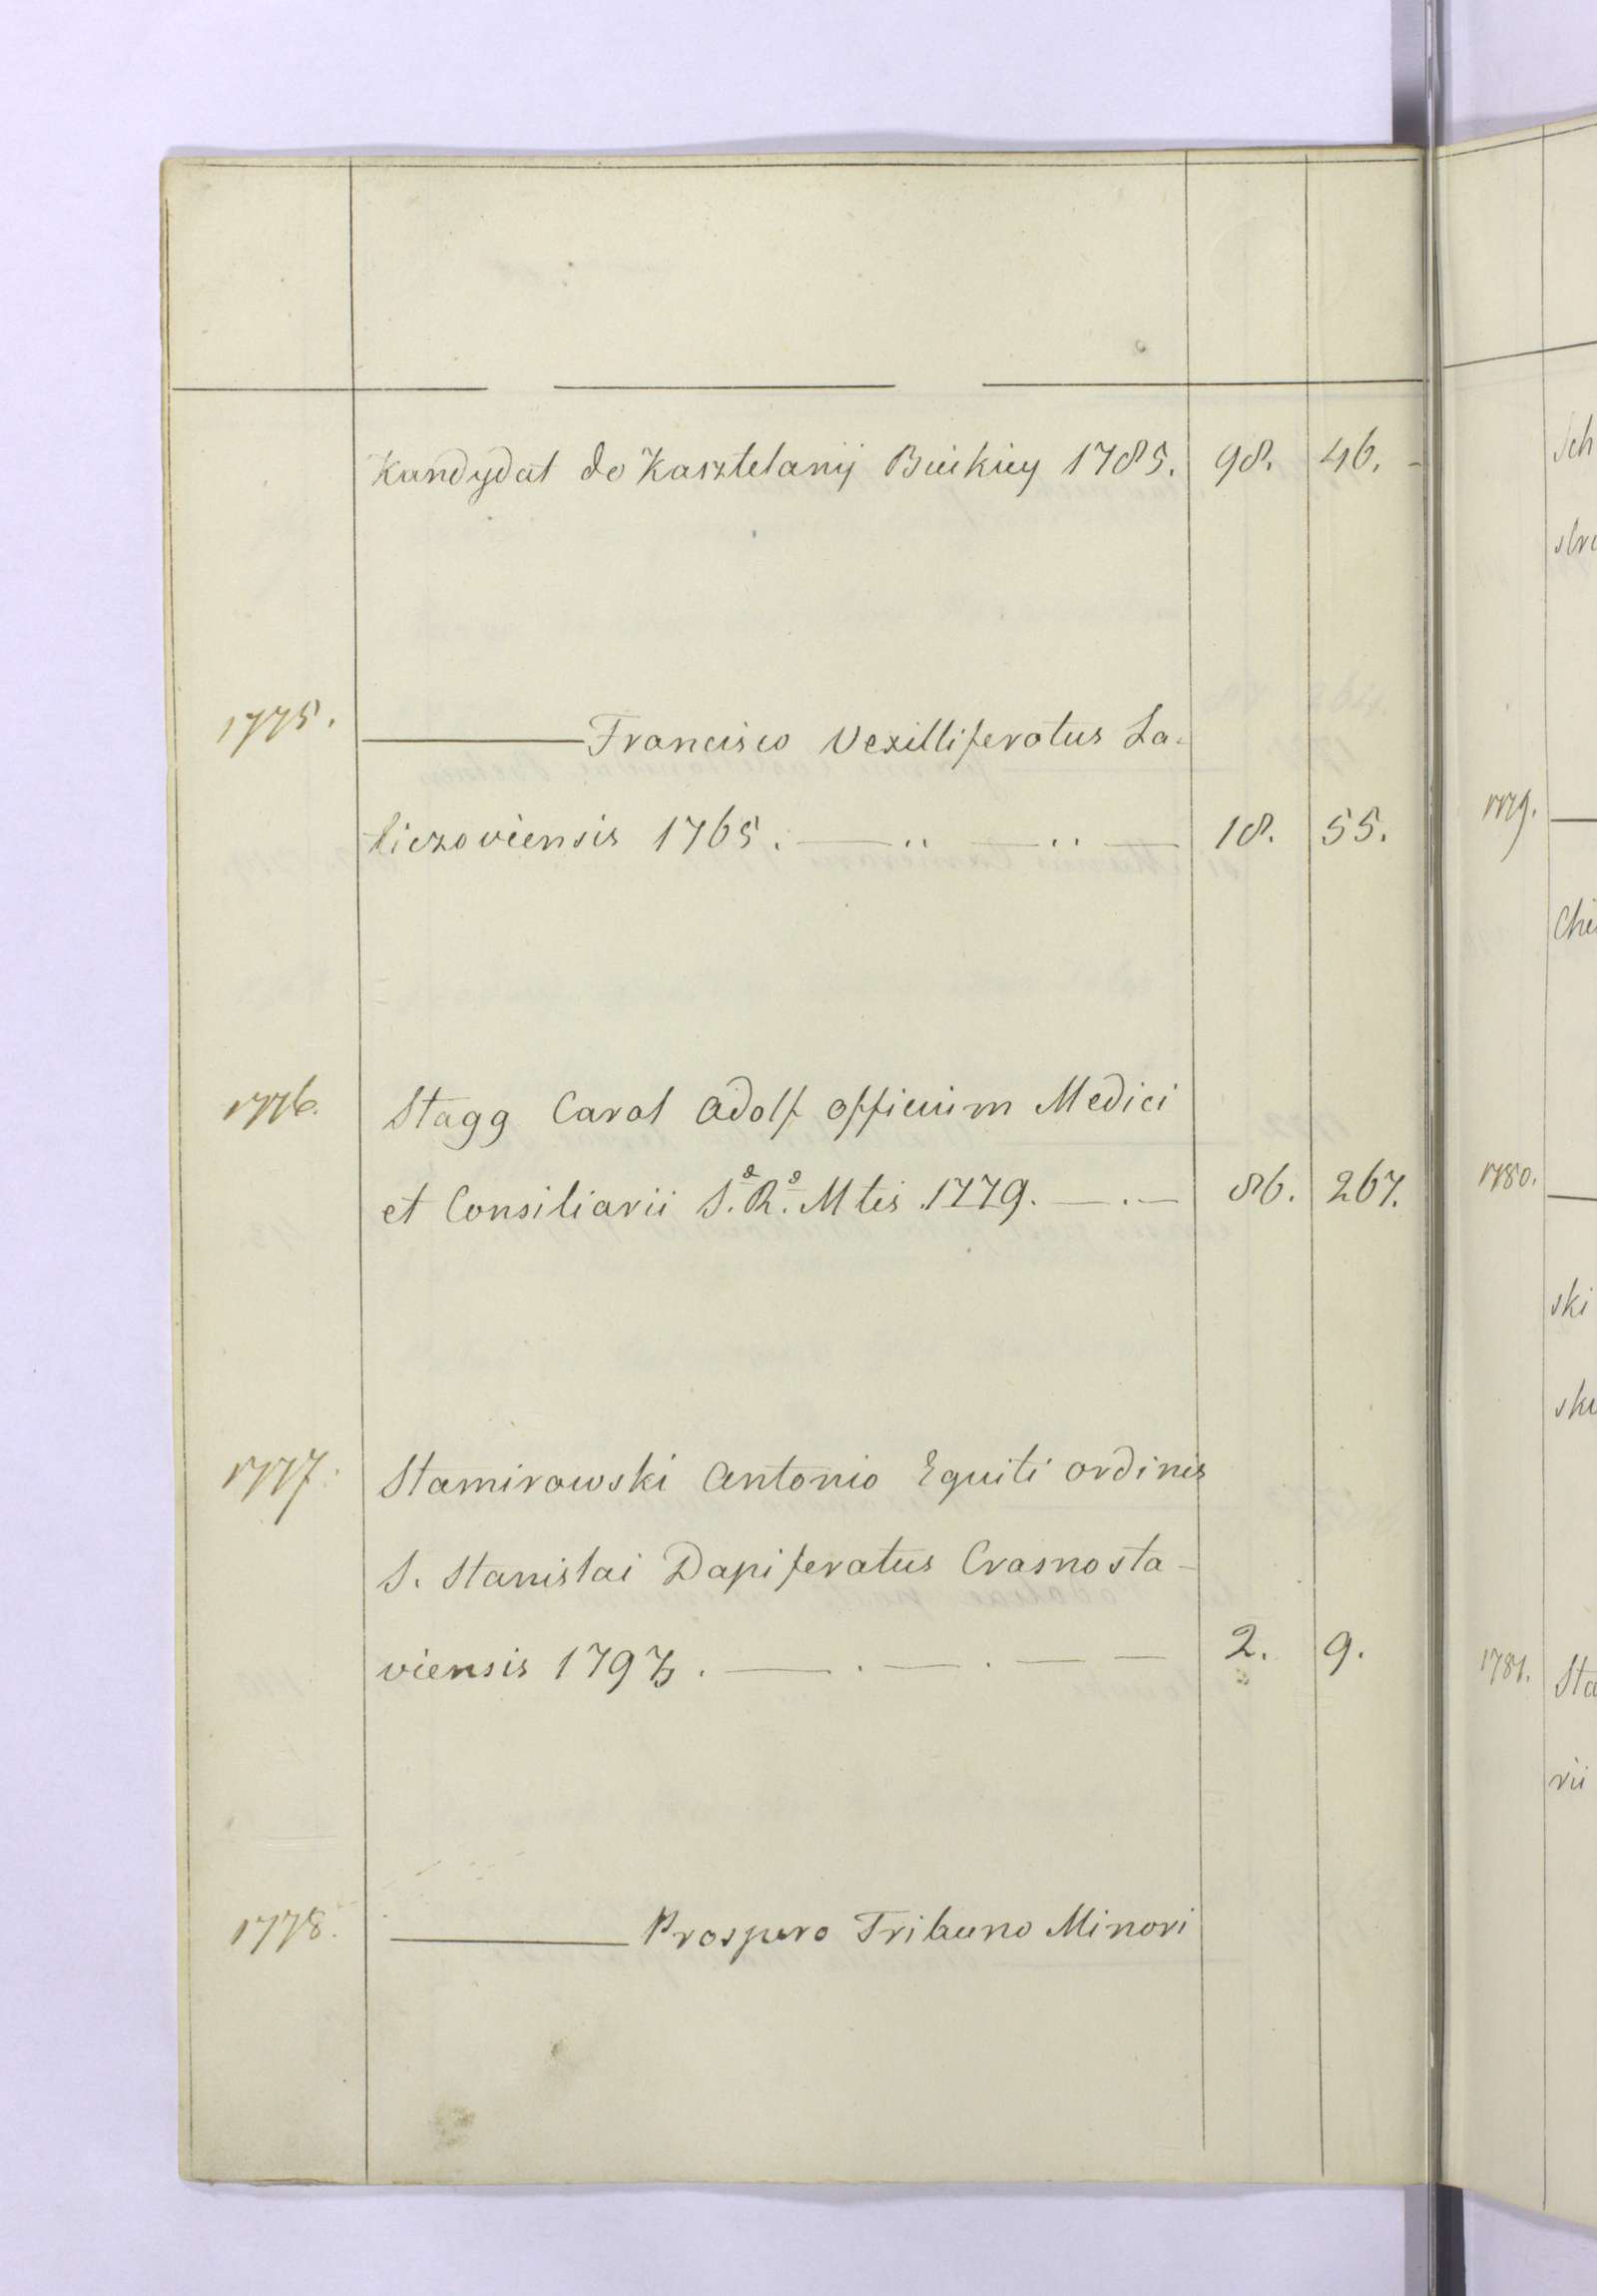 Kandydat do Kasztelanij Buskiey 1785. 98. 46. -
1775. ——— Francisco Vexilliferatus La-
ticzoviensis 1765. —..—..— 18. 55.
1776. Stagg Carol Adolf officium Medici
et Consiliarii S. R. Mtis 1779. —.— 86. 267.
1777. Stamirowski Antonio Equiti ordinis
S. Stanislai Dapiferatus Crasnosta-
viensis 1793. —.—.— — 2. 9.
1778. ——— Prospero Tribuno Minori
Sch
1779. —
Che
1780. —
ski
1781. Sta
rii